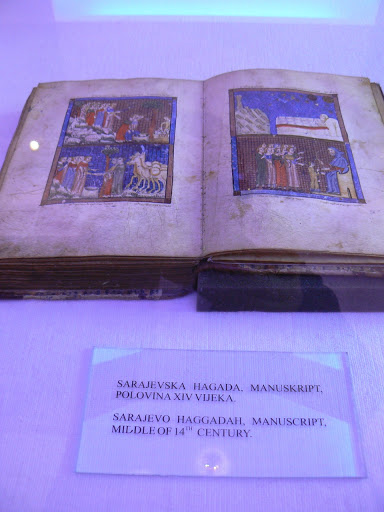 SARAJEVSKA HAGADA, MANUSKRIPT,
POLOVINA XIV VIJEKA.
SARAJEVO HAGGADAH, MANUSCRIPT,
MIDDLE OF 14TH CENTURY.